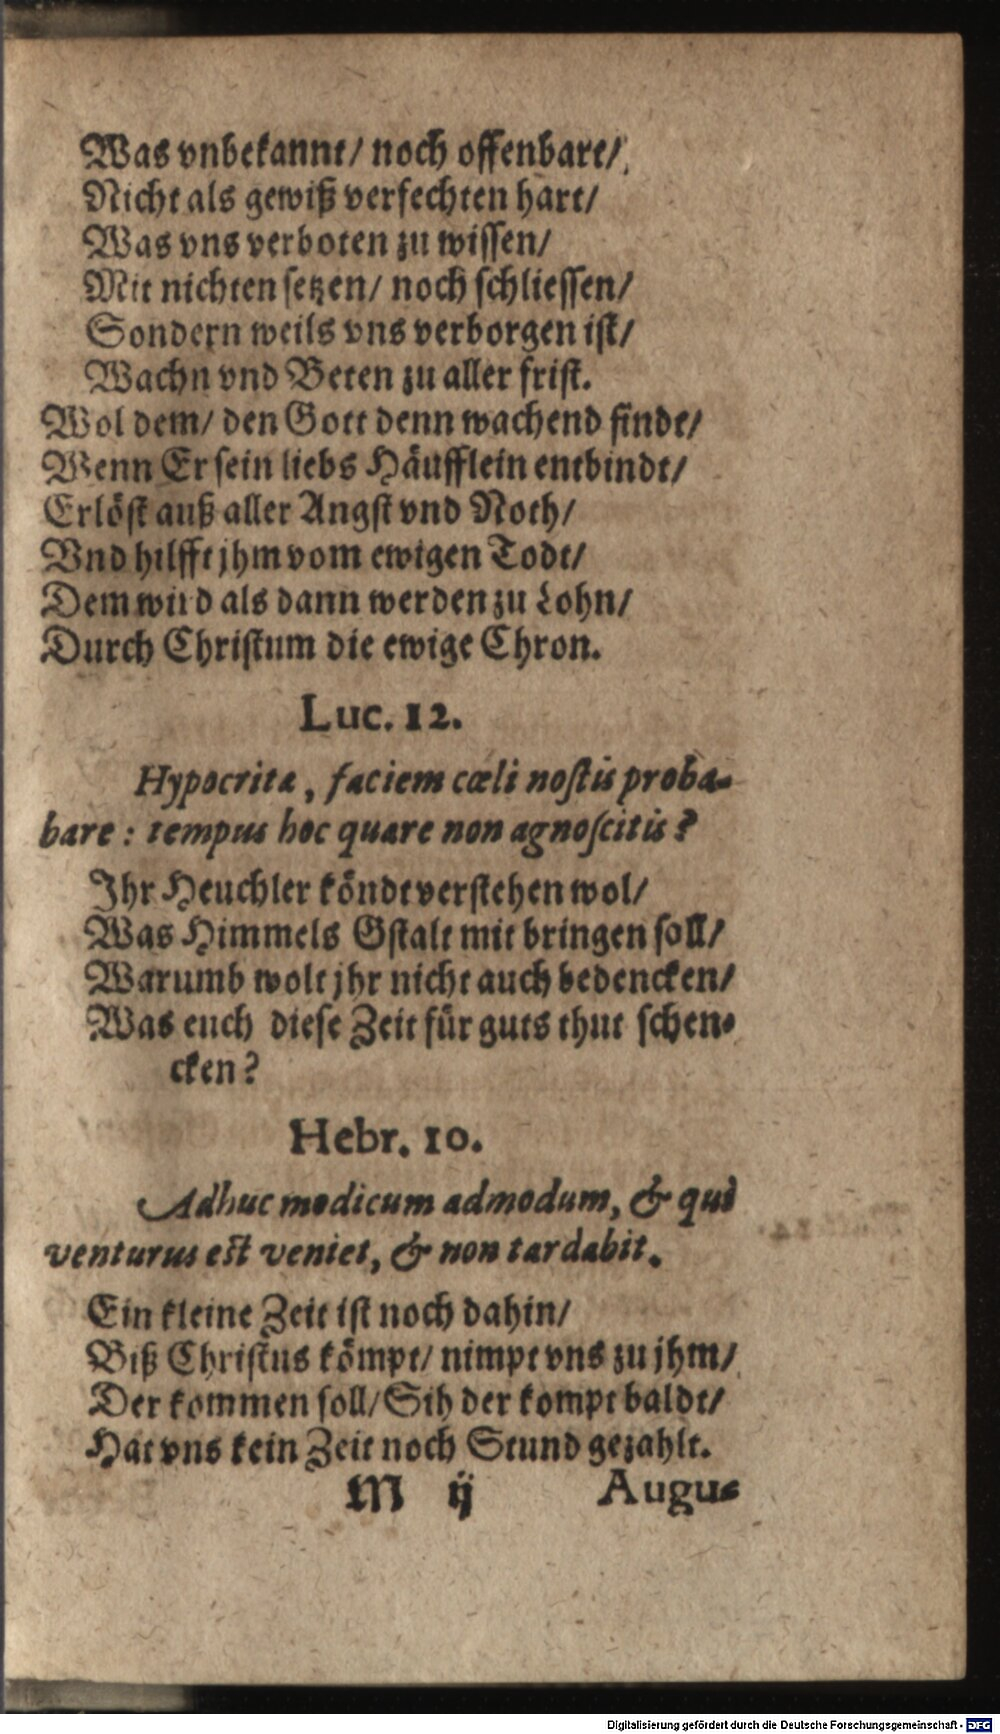 Was vnbekannt/ noch offenbart/
Nicht als gewiß verfechten hart/
Was vns verboten zu wissen/
Mit nichten setzen/ noch schliessen/
Sondern weils vns verborgen ist/
Wachn vnd Beten zu aller frist.
Wol dem/ den Gott denn wachend findt/
Wenn Er sein liebs Häufflein entbindt/
Erlöst auß aller Angst vnd Noth/
Vnd hilfft jhm vom ewigen Todt/
Dem wird als dann werden zu Lohn/
Durch Christum die ewige Chron.
Luc. 12.
Hypocritæ, faciem cœli nostis proba-
bare: tempus hoc quare non agnoscitis?
Ihr Heuchler köndt verstehen wol/
Was Himmels Gstalt mit bringen soll/
Warumb wolt jhr nicht auch bedencken/
Was euch diese Zeit für guts thut schen-
cken?
Hebr. 10.
Adhuc modicum admodum, & qui
venturus est veniet, & non tardabit.
Ein kleine Zeit ist noch dahin/
Biß Christus kömpt/ nimpt vns zu jhm/
Der kommen soll/ Sih der kompt baldt/
Hat vns kein Zeit noch Stund gezahlt.
M ij Augu-
Digitalisierung gefördert durch die Deutsche Forschungsgemeinschaft - DFG